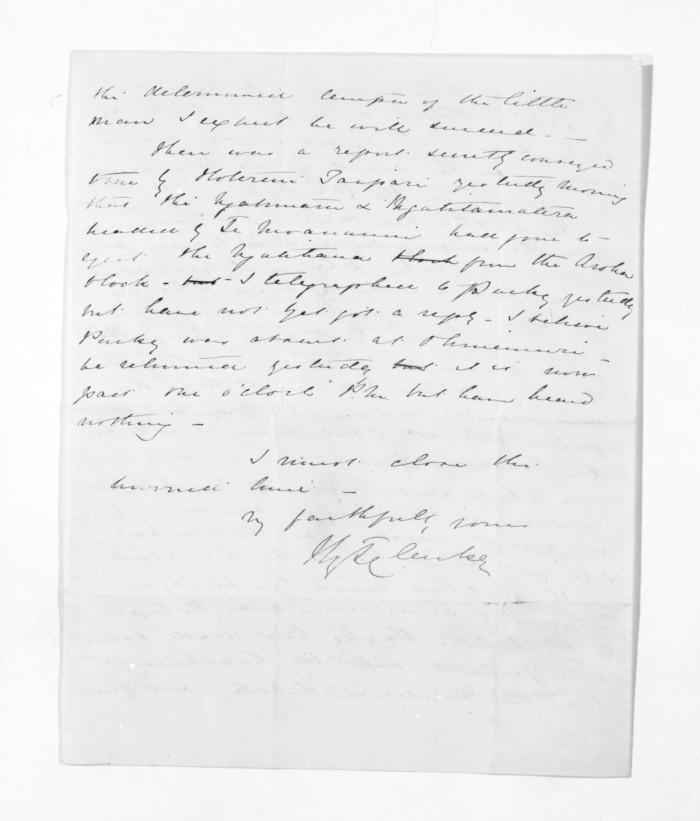 the determined temper of the little
man I expect he will succeed. —
There was a report secretly conveyed
to me by Hotereni Taipari yesterday morning
that the Ngatimaru & Ngatitamatera
headed by Te Moananui had gone to
eject the Ngatihaua block from the Aroha
block - but I telegraphed to Puckey yesterday
but have not yet got a reply - I believe
Puckey was absent at Ohinemuri -
he returned yesterday but it is now
past one o'clock P.M. but have heard
nothing —
I must close this
hurried line —
Vy faithfully yours
Hy T Clarke